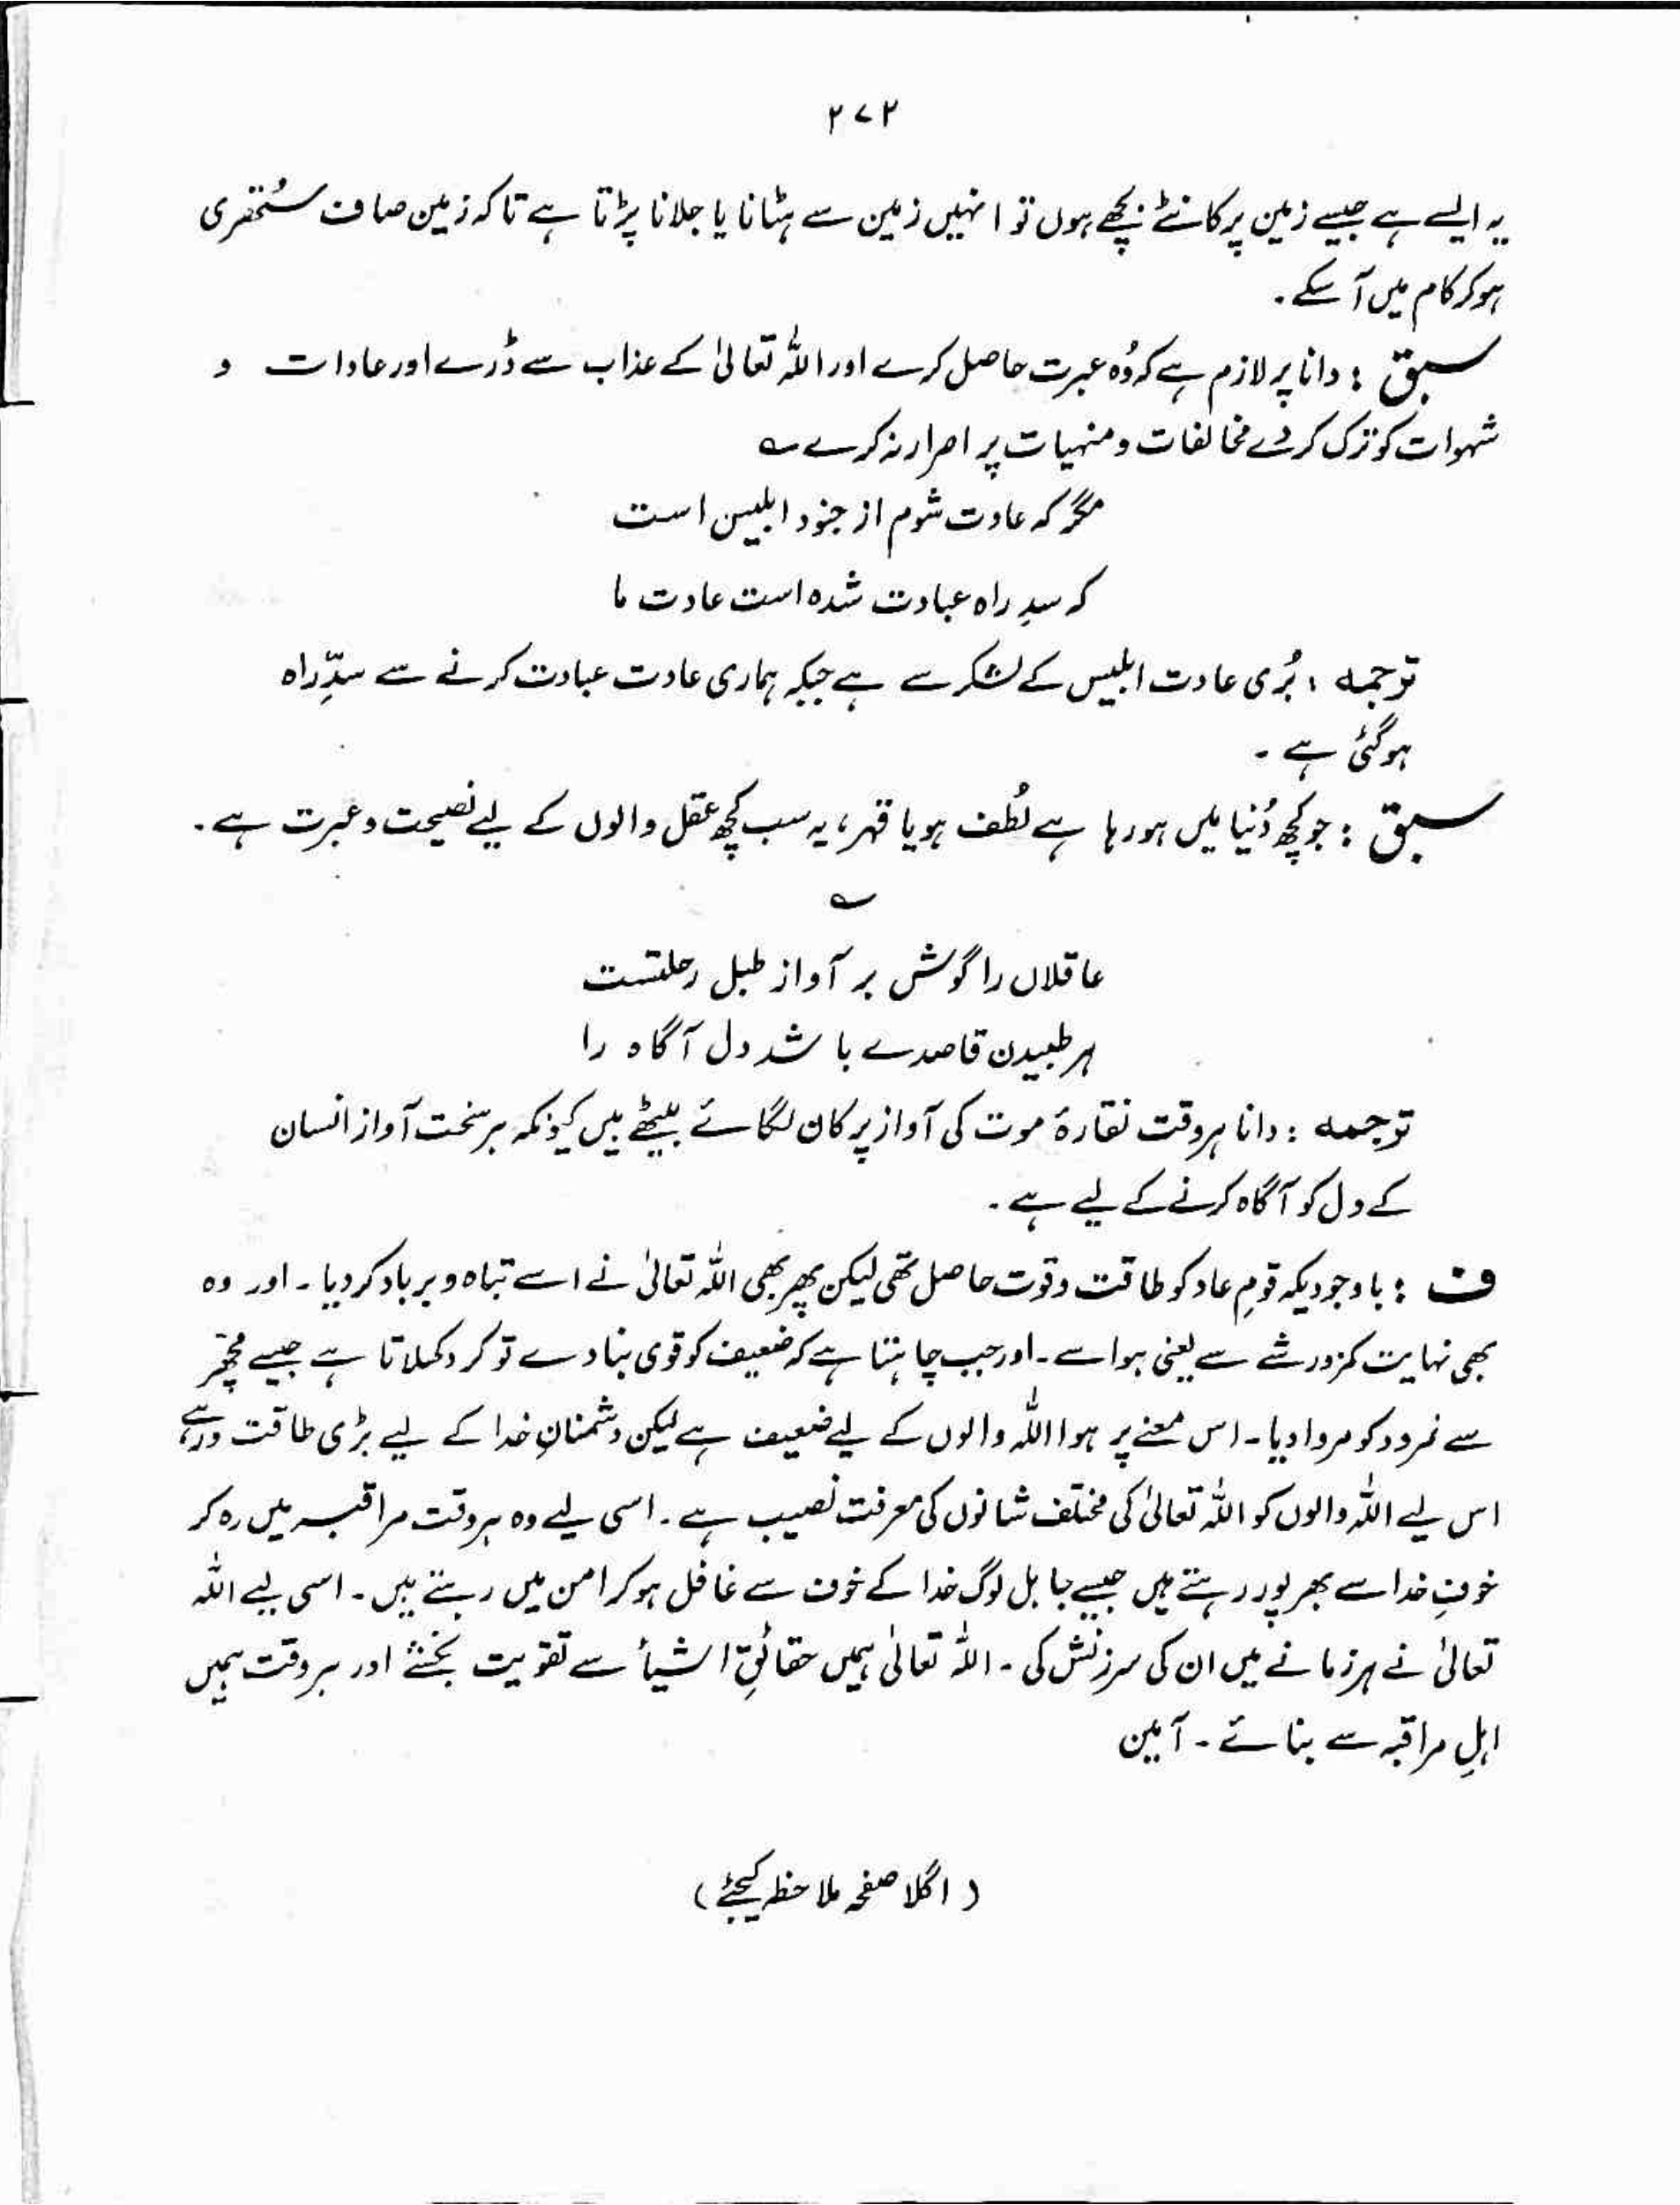 ۲۷۲
یہ ایسے ہے جیسے زمین پر کانٹے بچھے ہوں تو انہیں زمین سے ہٹانا یا جلانا پڑتا ہے تاکہ زمین صاف سُتھری
ہو کر کام میں آ سکے۔
سبق : دانا پر لازم ہے کہ وُہ عبرت حاصل کرے اور اللہ تعالیٰ کے عذاب سے ڈرے اور عادات و
شہوات کو ترک کر دے مخالفات و منہیات پر اصرار نہ کرے ؎
مگر کہ عادت شوم از جنود ابلیس است
کہ سدِ راہ عبادت شدہ است عادت ما
ترجمہ : بُری عادت ابلیس کے لشکر سے ہے جبکہ ہماری عادت عبادت کرنے سے سدِّ راہ
ہو گئی ہے ۔
سبق : جو کچھ دُنیا میں ہو رہا ہے لُطف ہو یا قہر ، یہ سب کچھ عقل والوں کے لیے نصیحت و عبرت ہے ۔
؎
عاقلاں را گوش بر آواز طبل رحلتست
ہر طپیدن قاصدے باشد دل آگاہ را
ترجمہ : دانا ہر وقت نقارۂ موت کی آواز پر کان لگائے بیٹھے ہیں کیونکہ ہر سخت آواز انسان
کے دل کو آگاہ کرنے کے لیے ہے ۔
ف : باوجودیکہ قومِ عاد کو طاقت و قوت حاصل تھی لیکن پھر بھی اللہ تعالیٰ نے اسے تباہ و برباد کر دیا ۔ اور وہ
بھی نہایت کمزور شے سے یعنی ہوا سے ۔ اور جب چاہتا ہے کہ ضعیف کو قوی بنا دے تو کر دکھلاتا ہے جیسے مچھر
سے نمرود کو مروا دیا ۔ اس معنے پر ہوا اللہ والوں کے لیے ضعیف ہے لیکن دشمنانِ خدا کے لیے بڑی طاقت ور ہے
اس لیے اللہ والوں کو اللہ تعالیٰ کی مختلف شانوں کی معرفت نصیب ہے ۔ اسی لیے وہ ہر وقت مراقبہ میں رہ کر
خوفِ خدا سے بھرپور رہتے ہیں جیسے جاہل لوگ خدا کے خوف سے غافل ہو کر امن میں رہتے ہیں ۔ اسی لیے اللہ
تعالیٰ نے ہر زمانے میں ان کی سرزنش کی ۔ اللہ تعالیٰ ہمیں حقائقِ اشیأ سے تقویت بخشے اور ہر وقت ہمیں
اہلِ مراقبہ سے بنائے ۔ آمین
( اگلا صفحہ ملاحظہ کیجئے )